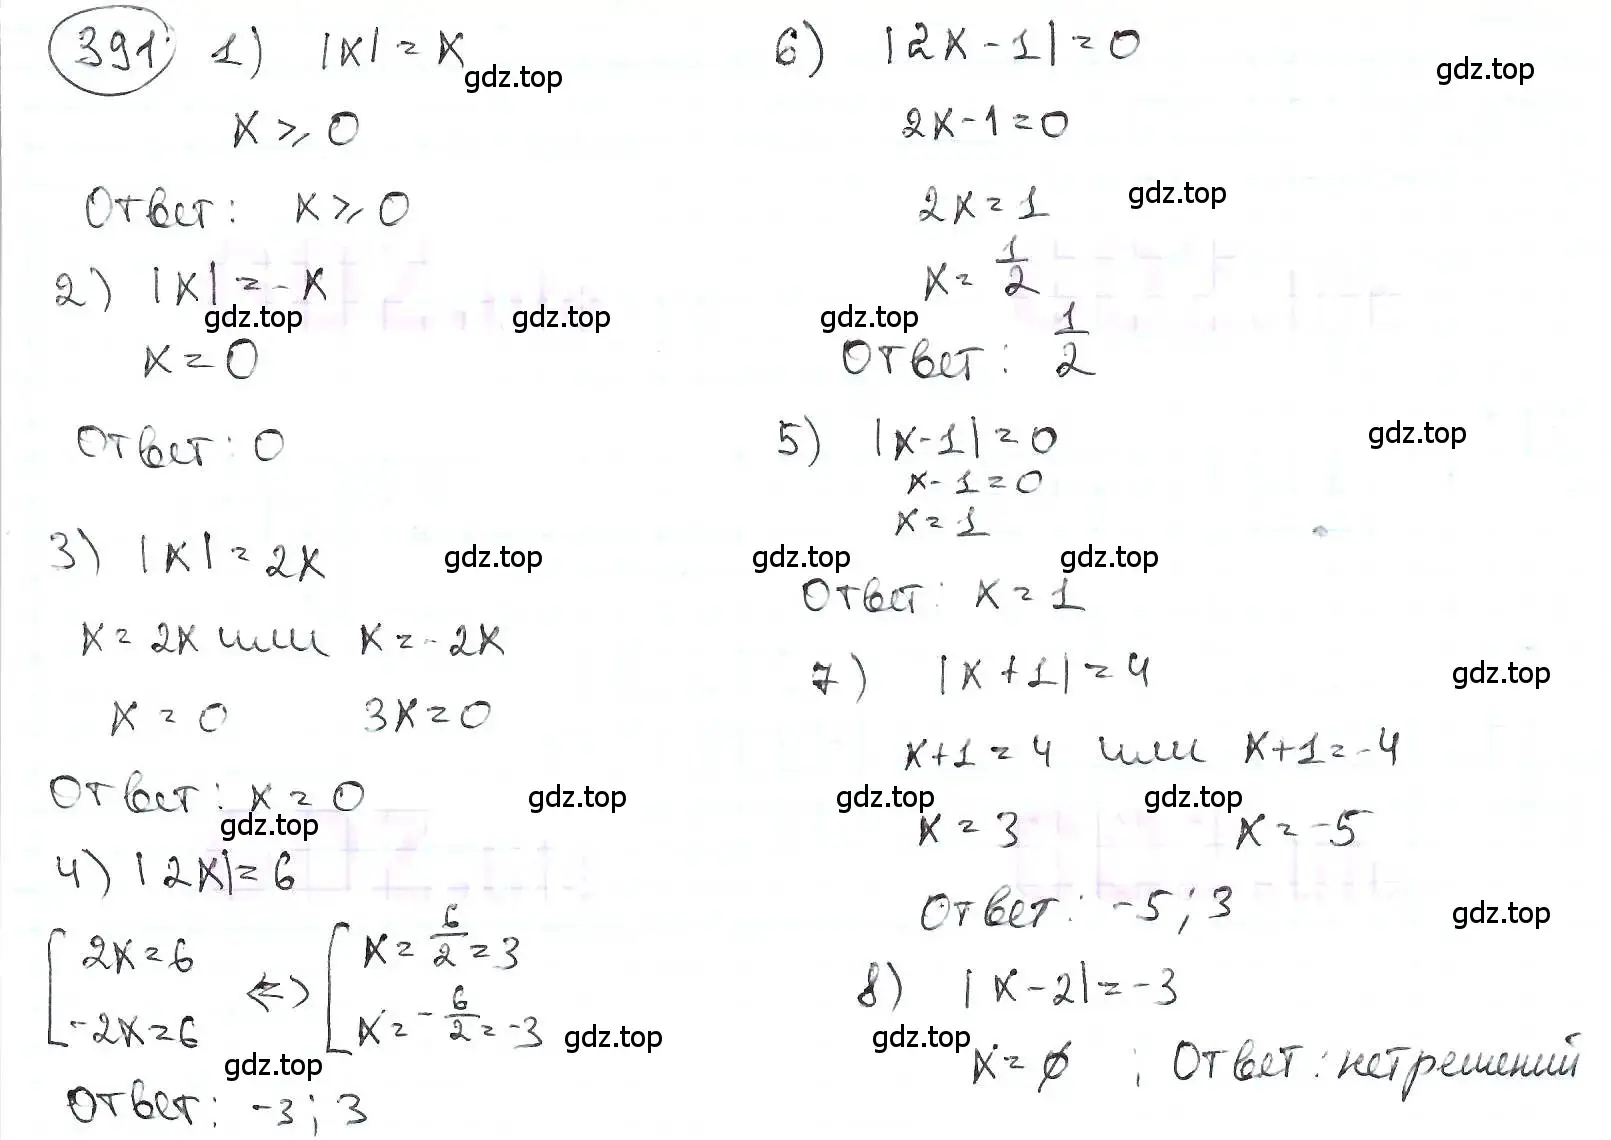 391 1) |x| = x
gdz.top
x ⩾ 0
Ответ: x ⩾ 0
2) |x| = -x
gdz.top gdz.top
x = 0
Ответ: 0
3) |x| = 2x
gdz.top
x = 2x или x = -2x
x = 0 3x = 0
Ответ: x = 0
gdz.top gdz.top
4) |2x| = 6
[ 2x = 6 <=> [ x = 6/2 = 3
-2x = 6 x = -6/2 = -3
gdz.top gdz.top
Ответ: -3; 3
6) |2x - 1| = 0
gdz.top
2x - 1 = 0
2x = 1
gdz.top
x = 1/2
gdz.top
Ответ: 1/2
5) |x - 1| = 0
gdz.top
x - 1 = 0
x = 1
gdz.top gdz.top
Ответ: x = 1
7) |x + 1| = 4
gdz.top
x + 1 = 4 или x + 1 = -4
gdz.top gdz.top
x = 3 x = -5
Ответ: -5; 3
gdz.top
8) |x - 2| = -3
gdz.top
x = ∅ ; Ответ: нет решений